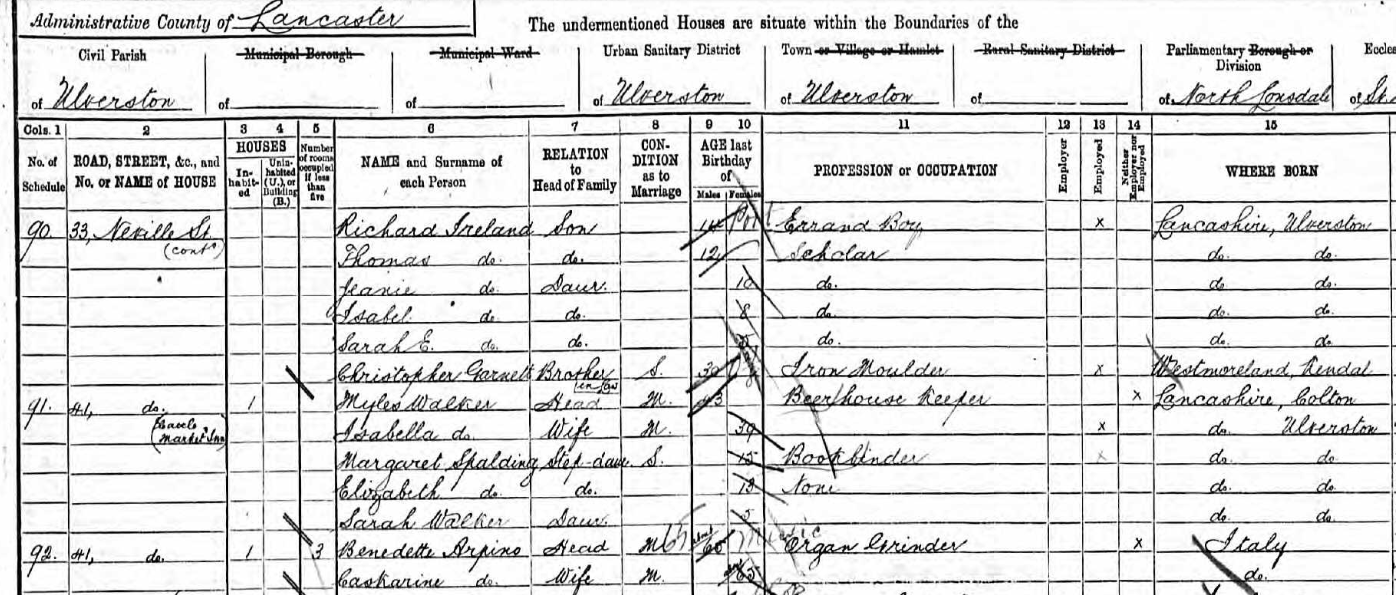 Administrative County of Lancaster
The undermentioned Houses are situate within the Boundaries of the
Civil Parish Municipal Borough Municipal Ward Urban Sanitary District Town or Village or Hamlet Rural Sanitary District Parliamentary Borough or Division Eccles
of Ulverston of of of Ulverston of Ulverston of of North Lonsdale of St.
Cols. 1 2 3 4 5 6 7 8 9 10 11 12 13 14 15
No. of Schedule ROAD, STREET, &c., and No. or NAME of HOUSE HOUSES Inhabited Uninhabited (U.), or Building (B.) Number of rooms occupied if less than five NAME and Surname of each Person RELATION to Head of Family CONDITION as to Marriage AGE last Birthday of Males Females PROFESSION or OCCUPATION Employer Employed Neither Employer nor Employed WHERE BORN
90 33, Neville St Richard Ireland Son 14 Errand Boy x Lancashire, Ulverston
(contd) Thomas do. do. 12 Scholar do. do.
Jeanie do. Daur. 10 do. do. do.
Isabel do. do. 8 do. do. do.
Sarah E. do. do. do. do. do.
Christopher Garnett Brother in law S. 30 Iron Moulder x Westmoreland, Kendal
91. 41, do. 1 Myles Walker Head M. 43 Beerhouse Keeper x Lancashire, Colton
Market Inn) Isabella do. Wife M. 39 x do. Ulverston
Margaret Spalding Step-daur. S. 15 Bookbinder x do. do.
Elizabeth do. do. 13 None do. do.
Sarah Walker Daur. 5 do. do.
92. 41, do. 1 3 Benedette Arpino Head M 65 60 Organ Grinder x Italy
Caskarine do. Wife M. 65 do.